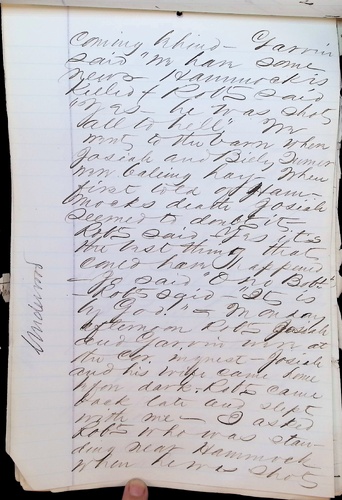 coming behind - Garvin
said "We have some
news - Hammock is
killed & Rob's said
"Yes - he was shot
all to hell" We
went to the barn when
Josiah and Billy Turner
were baleing hay. When
first told of Ham-
mocks death Josiah
seemed to doubt it -
Rob's said Yes, its
the best thing that
could have happened
- He said O no Bob" -
Rob's said - It is
by God." - Monday
afternoon Rob's Josiah
and Garvin were at
the Cor. inquest - Josiah
and his wife came home
upon dark. Rob's came
back late and slept
with me - I asked
Rob's who was stan-
ding near Hammock
when he was shot
Underwood